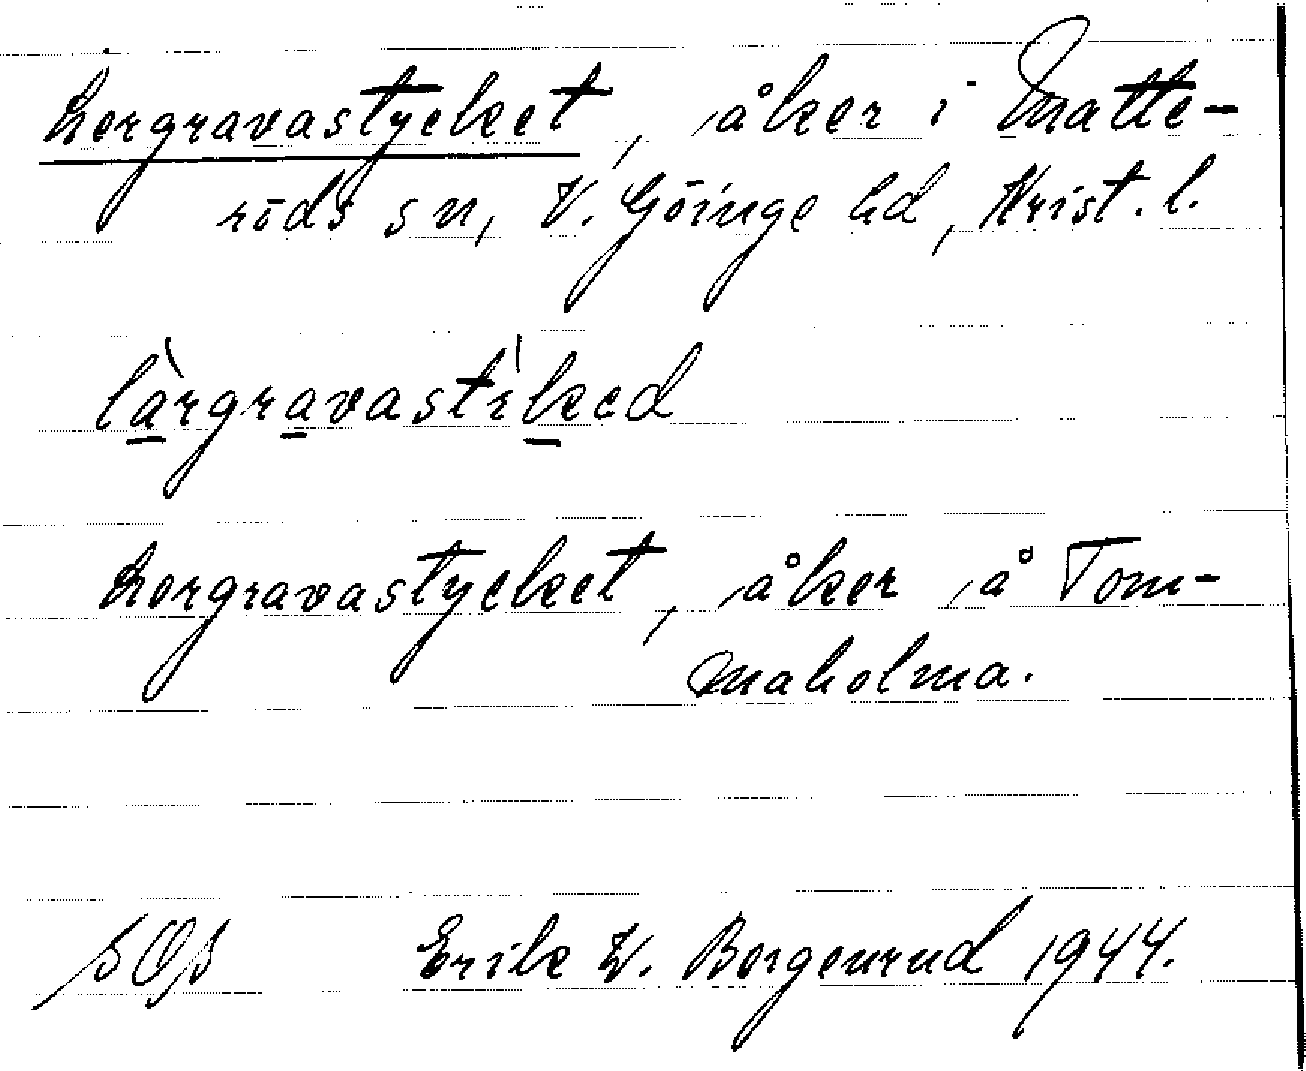 Lergravastycket, åker i Matte-
röds sn, V. Göinge hd, Krist. l.
làrgravastìked
Lergravastycket, åker å Tom-
maholma.
SOS Erik W. Borgenrud 1944.